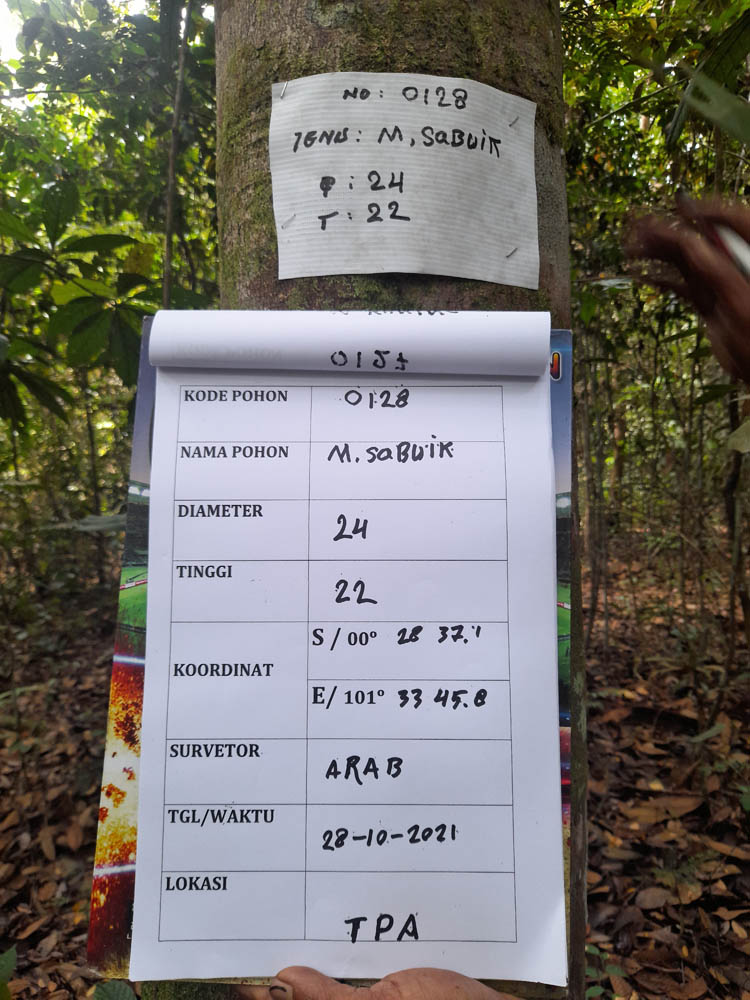 NO: 0128
JENIS: M. SABUIK
: 24
T: 22
KODE POHON 0128
NAMA POHON M. SABUIK
DIAMETER 24
TINGGI 22
KOORDINAT
S / 00° 28 37.1
E/ 101° 33 45.8
SURVETOR ARAB
TGL/WAKTU 28-10-2021
LOKASI TPA